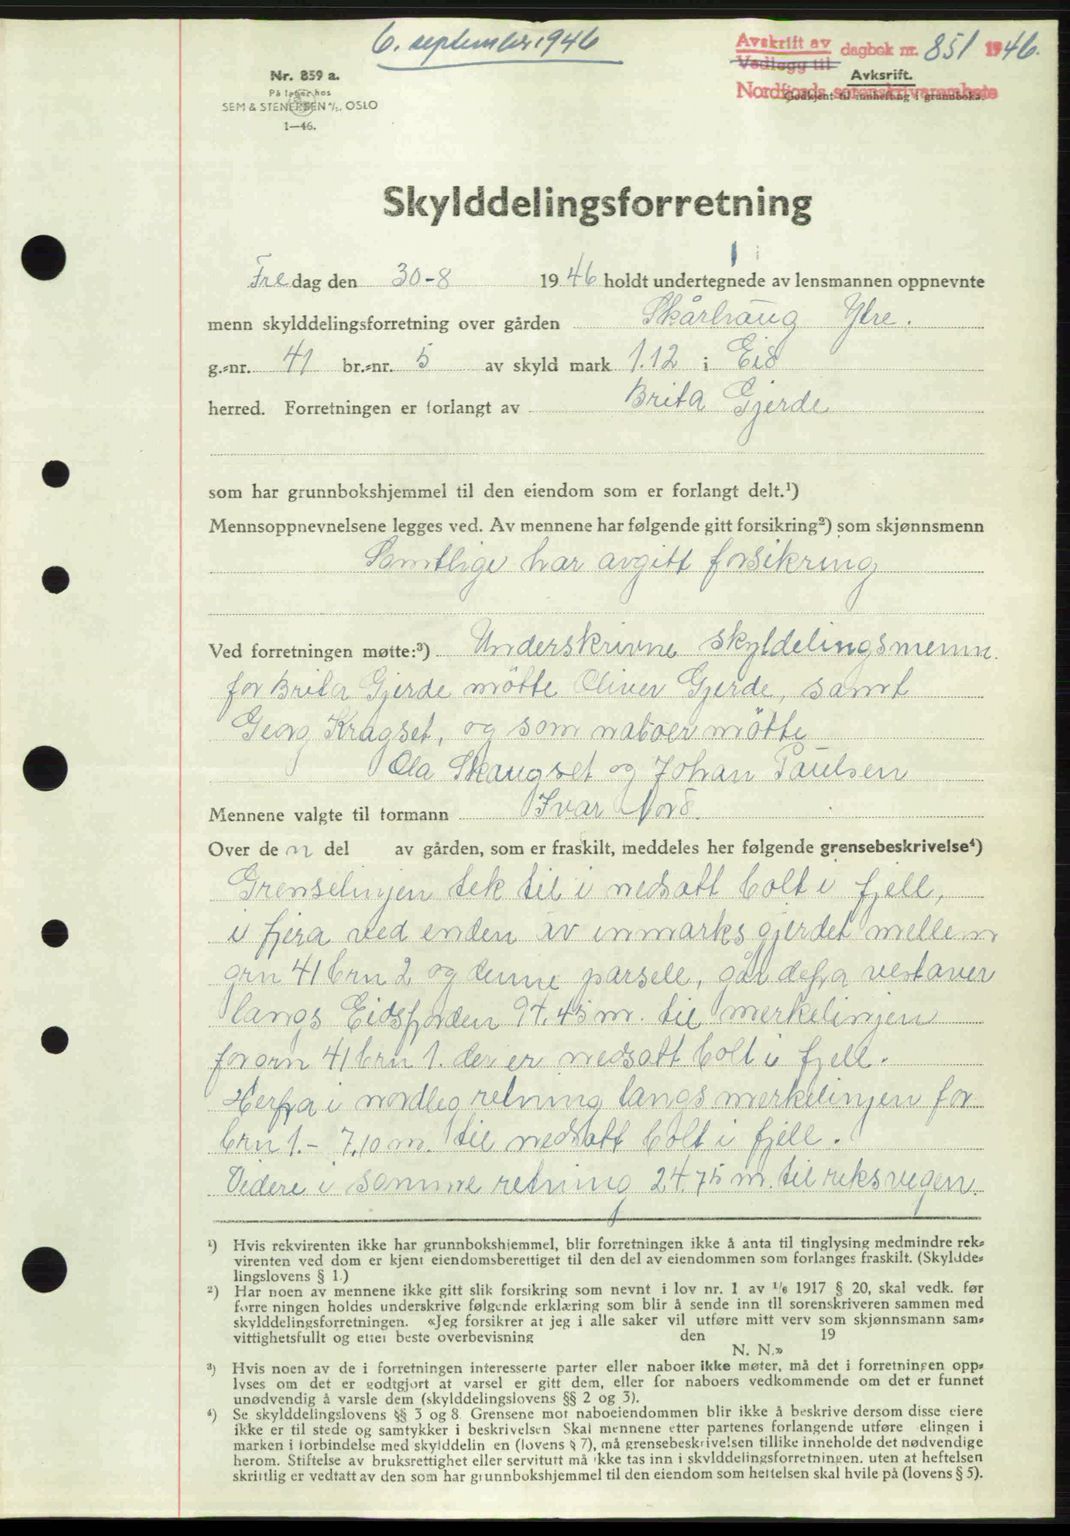 6. september 1946
Avskrift av dagbok nr. 851 1946.
Vedlegg til
Nordfjords sorenskriverembete
Nr. 859 a.
På lager hos
SEM & STENERSEN A/S, OSLO
1—46.
Avksrift.
Godkjent til innhefting i grunnboka.
Skylddelingsforretning
Fredag den 30-8 1946 holdt undertegnede av lensmannen oppnevnte
menn skylddelingsforretning over gården Skårhaug Ytre.
g.=nr. 41 br.=nr. 5 av skyld mark 1.12 i Eid
herred. Forretningen er forlangt av Brita Gjerde
som har grunnbokshjemmel til den eiendom som er forlangt delt.¹)
Mennsoppnevnelsene legges ved. Av mennene har følgende gitt forsikring²) som skjønnsmenn
Samtlige har avgitt forsikring
Ved forretningen møtte:³) Underskrivne skyldelingsmenn.
for Brita Gjerde møtte Oliver Gjerde, samt
Georg Kragset, og som naboer møtte
Ola Skaugset og Johan Paulsen
Mennene valgte til formann Ivar Nord.
Over den del av gården, som er fraskilt, meddeles her følgende grensebeskrivelse⁴)
Grenselinjen tek til i nedsatt bolt i fjell,
i fjera ved enden av inmarksgjerdet mellem
grn 41 brn 2 og denne parsell, går defra vestover
langs Eidsfjorden 94.45 m. til merkelinjen
for grn 41 brn 1. der er nedsatt bolt i fjell.
Herfra i nordleg retning langs merkelinjen for
brn 1. - 7,10 m. til nedsatt bolt i fjell.
Videre i samme retning 24.75 m. til riksvegen.
¹) Hvis rekvirenten ikke har grunnbokshjemmel, blir forretningen ikke å anta til tinglysing medmindre rek=
virenten ved dom er kjent eiendomsberettiget til den del av eiendommen som forlanges fraskilt. (Skyldde=
lingslovens § 1.)
²) Har noen av mennene ikke gitt slik forsikring som nevnt i lov nr. 1 av 1/6 1917 § 20, skal vedk. før
forretningen holdes underskrive følgende erklæring som blir å sende inn til sorenskriveren sammen med
skylddelingsforretningen. «Jeg forsikrer at jeg i alle saker vil utføre mitt verv som skjønnsmann sam=
vittighetsfullt og etter beste overbevisning den 19
N. N.»
³) Hvis noen av de i forretningen interesserte parter eller naboer ikke møter, må det i forretningen opp=
lyses om det er godtgjort at varsel er gitt dem, eller for naboers vedkommende om det er funnet
unødvendig å varsle dem (skylddelingslovens §§ 2 og 3).
⁴) Se skylddelingslovens §§ 3 og 8. Grensene mot naboeiendommen blir ikke å beskrive dersom disse eiere
ikke er til stede og samtykker i beskrivelsen. Skal mennene etter partenes forlangende utføre delingen i
marken i forbindelse med skylddelingen (lovens § 7), må grensebeskrivelsen tillike inneholde det nødvendige
herom. Stiftelse av bruksrettighet eller servitutt må ikke tas inn i skylddelingsforretningen, uten at heftelsen
skriftlig er vedtatt av den som har grunnbokshjemmel til den eiendom som heftelsen skal hvile på (lovens § 5).